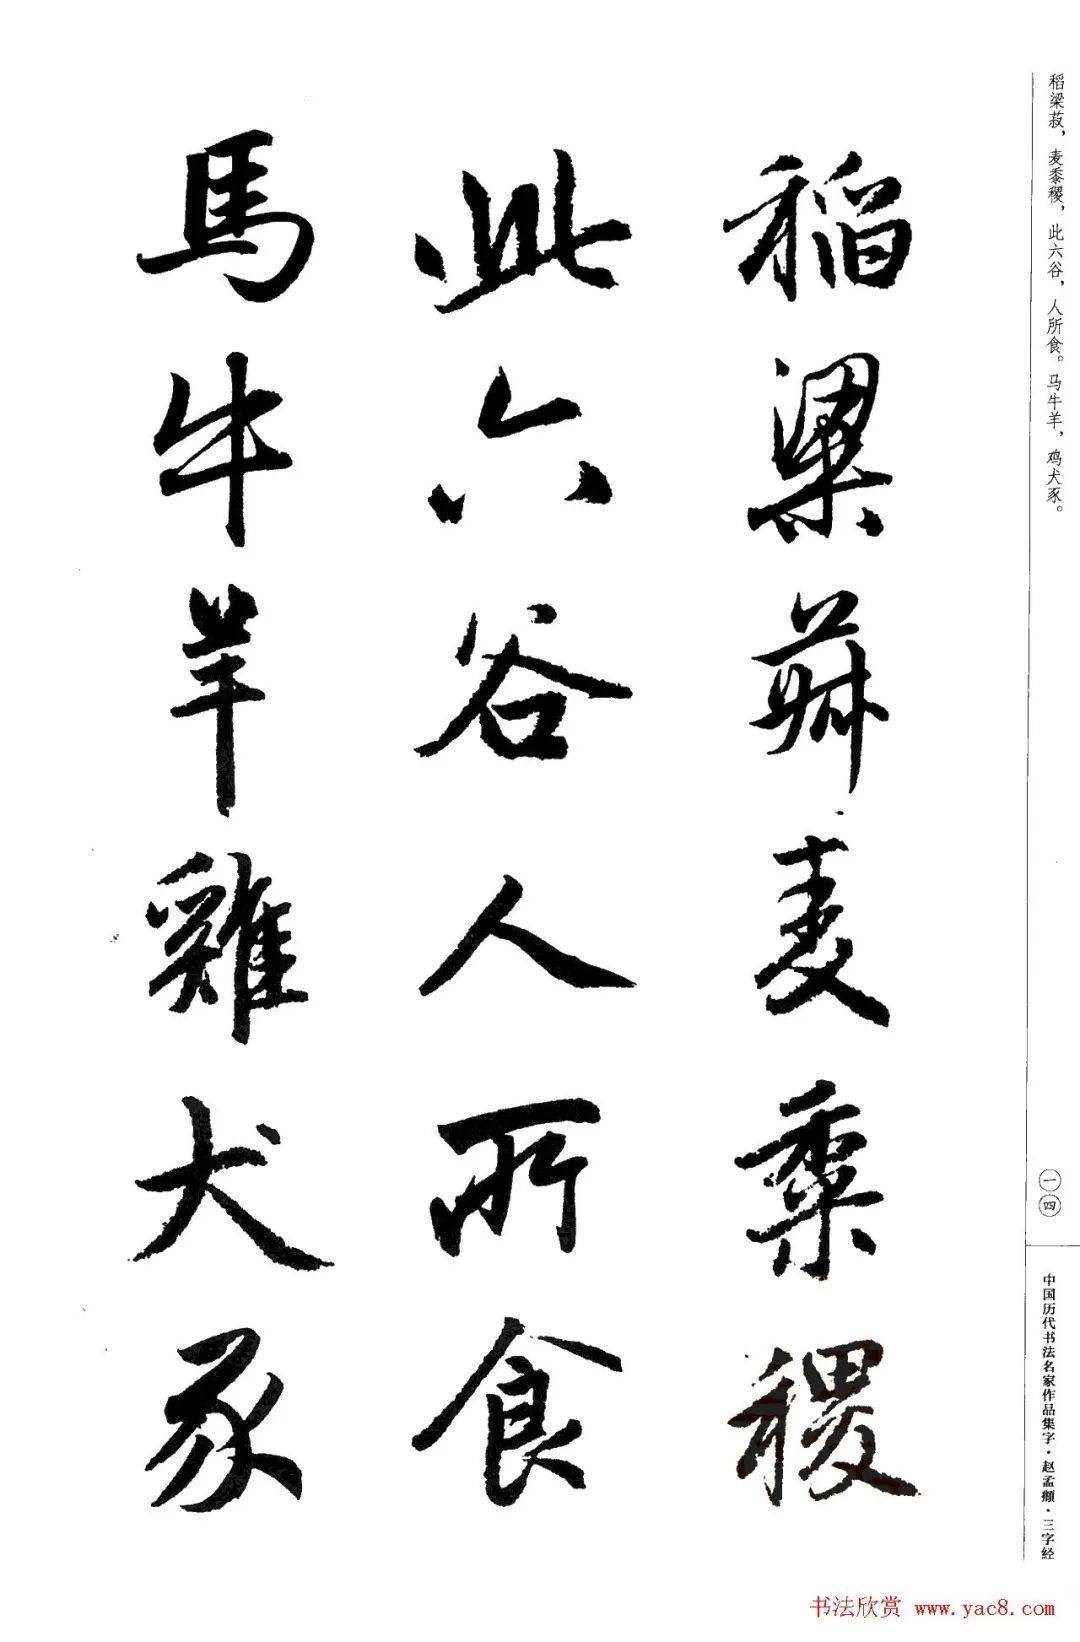 稻梁菽，麦黍稷，此六谷，人所食。马牛羊，鸡犬豕。
稻梁菽麦黍稷
此六谷人所食
馬牛羊雞犬豕
一四
中国历代书法名家作品集字·赵孟頫·三字经
书法欣赏 www.yac8.com